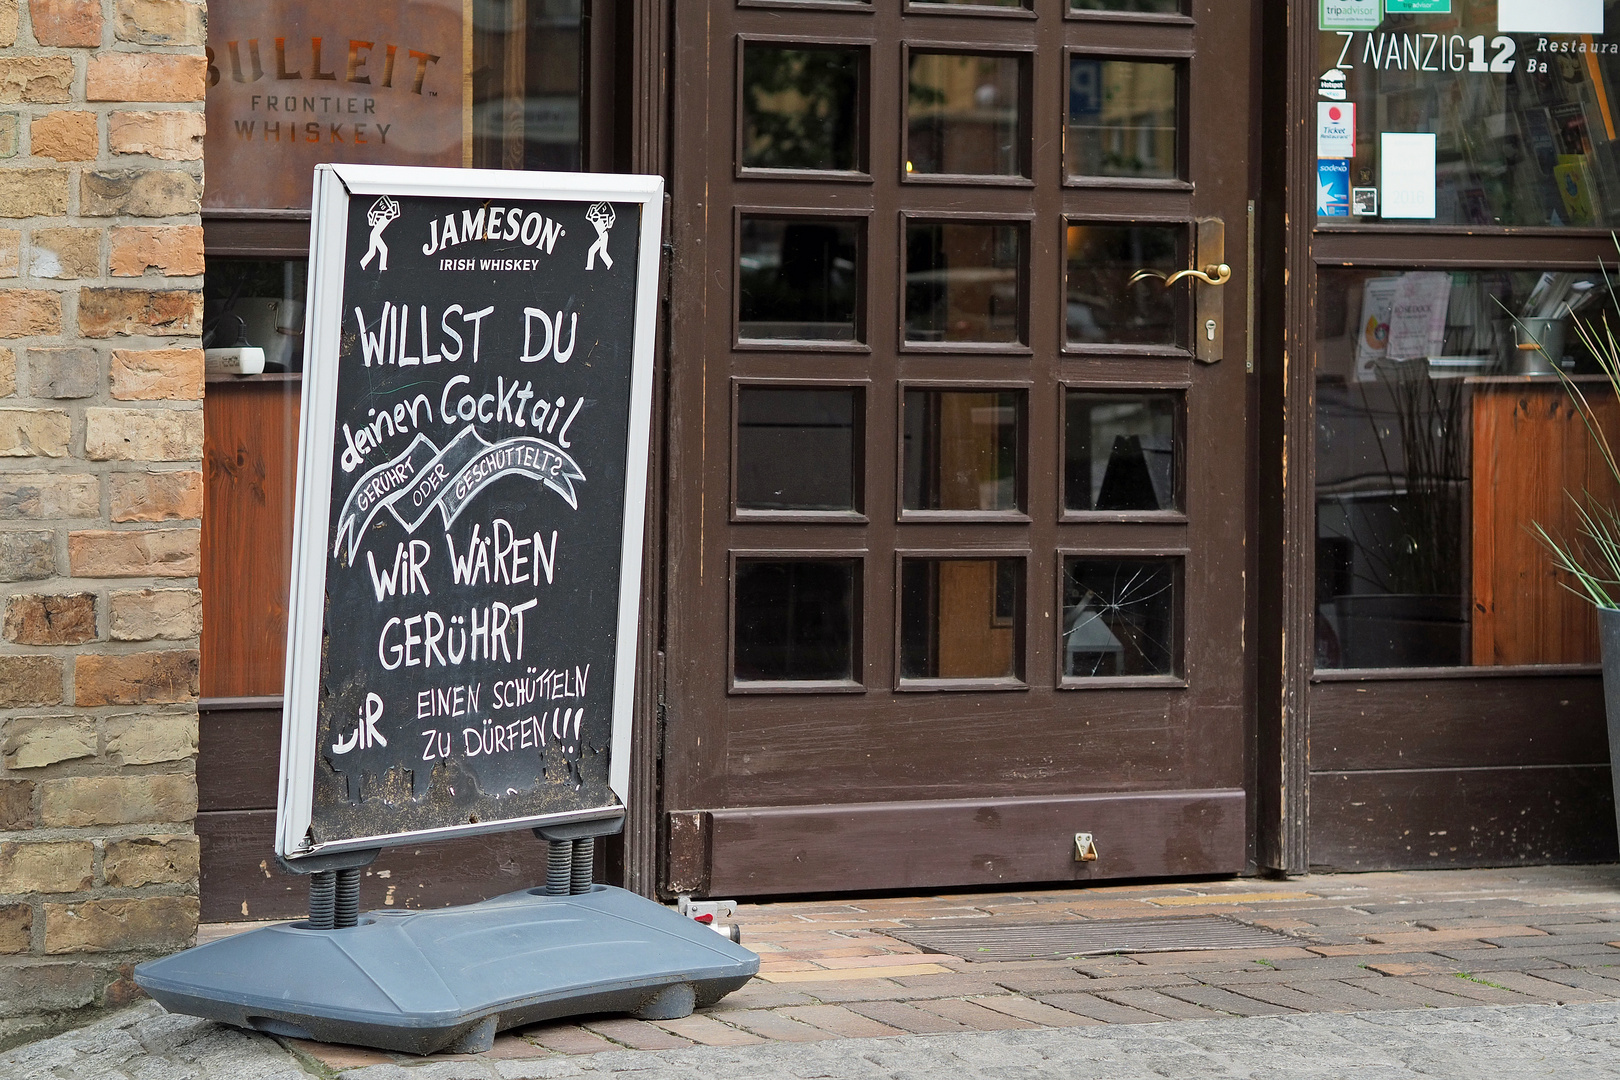 BULLEIT
FRONTIER
WHISKEY
JAMESON
IRISH WHISKEY
WILLST DU
deinen Cocktail
GERÜHRT ODER GESCHÜTTELT?
WiR WÄREN
GERÜHRT
DiR EINEN SCHÜTTELN
ZU DÜRFEN!!!
tripadvisor
tripadvisor
ZWANZIG12 Restaura
Ba
Hotspot
Ticket
Restaurant
sodexo